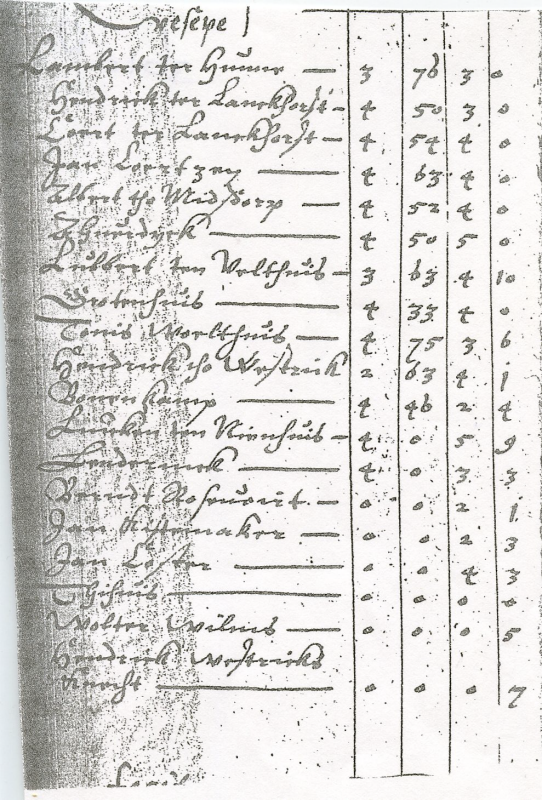 Vesepe
Lambert ter Hunne — 3 76 3 0
Hendrick ter Lanckhorst - 4 50 3 0
Coert ter Lanckhorst — 4 54 4 0
Jan Coertzen — 4 63 4 0
Albert tho Middorp — 4 52 4 0
— 4 50 5 0
Lubbert ten Velthuis - 3 63 4 10
Grotenhuis — 4 33 4 0
Tonis Woelthuis — 4 75 3 6
Hendrick tho Westrick 2 63 4 1
Bonenkamp — 4 46 2 4
Lucken ten Nienhuis - 4 0 5 9
— 4 0 3 3
Berndt — 0 0 2 1
Jan Kistemaker — 0 0 2 3
Jan Coster — 0 0 4 3
— 0 0 0 0
Wolter Wilms — 0 0 0 5
Hendrick Westricks
Knecht — 0 0 0 7